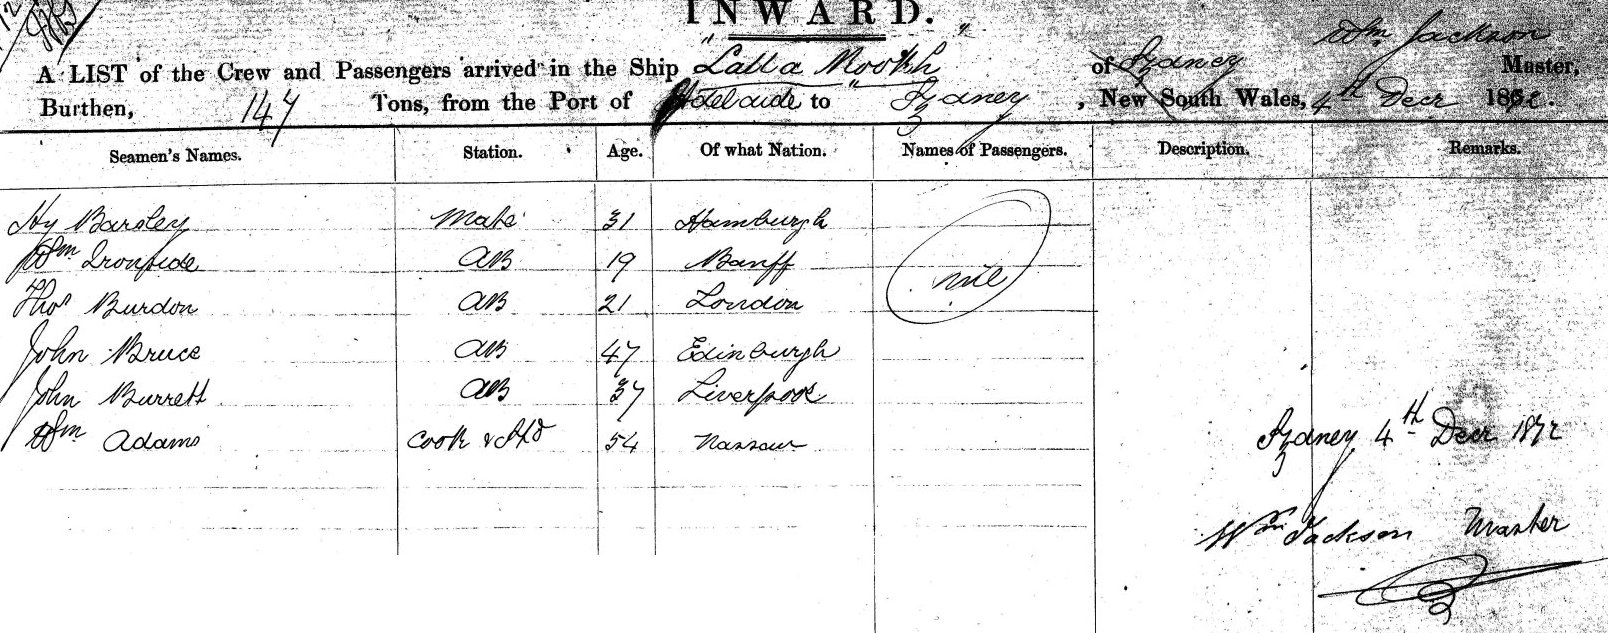 INWARD.
A LIST of the Crew and Passengers arrived in the Ship "Lalla Rookh" of Sydney Wm Jackson Master,
Burthen, 147 Tons, from the Port of Adelaide to Sydney, New South Wales, 4th Decr 1872.
Seamen's Names. Station. Age. Of what Nation. Names of Passengers. Description. Remarks.
Hy Barsley Mate 31 Hamburgh
Wm Ironside AB 19 Banff nil
Thos Burdon AB 21 London
John Bruce AB 47 Edinburgh
John Burrett AB 37 Liverpool
Wm Adams Cook & Std 54 Nassau
Sydney 4th Decr 1872
Wm Jackson Master